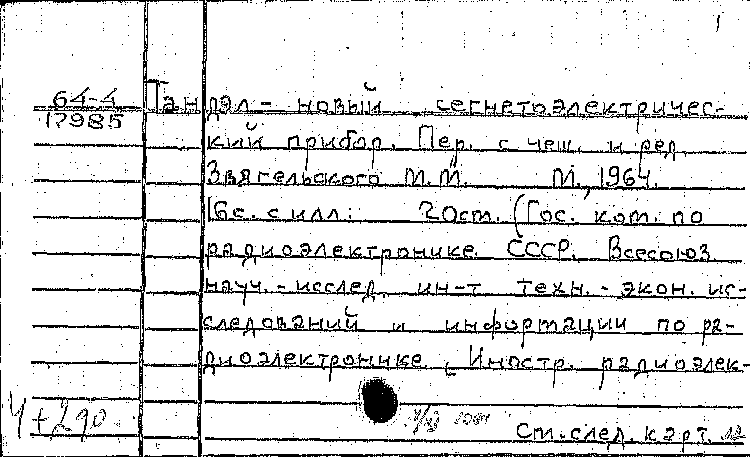 64-4
17985
Тандэл - новый сегнетоэлектричес-
кий прибор. Пер. с чеш. и ред.
Звягельского М.Й. М., 1964.
16с. с илл. 20см. (Гос. ком. по
радиоэлектронике СССР. Всесоюз.
науч.-исслед. ин-т техн.-экон. ис-
следований и информации по ра-
диоэлектронике. Иностр. радиоэлек-
Ч+290
См. след. карт.